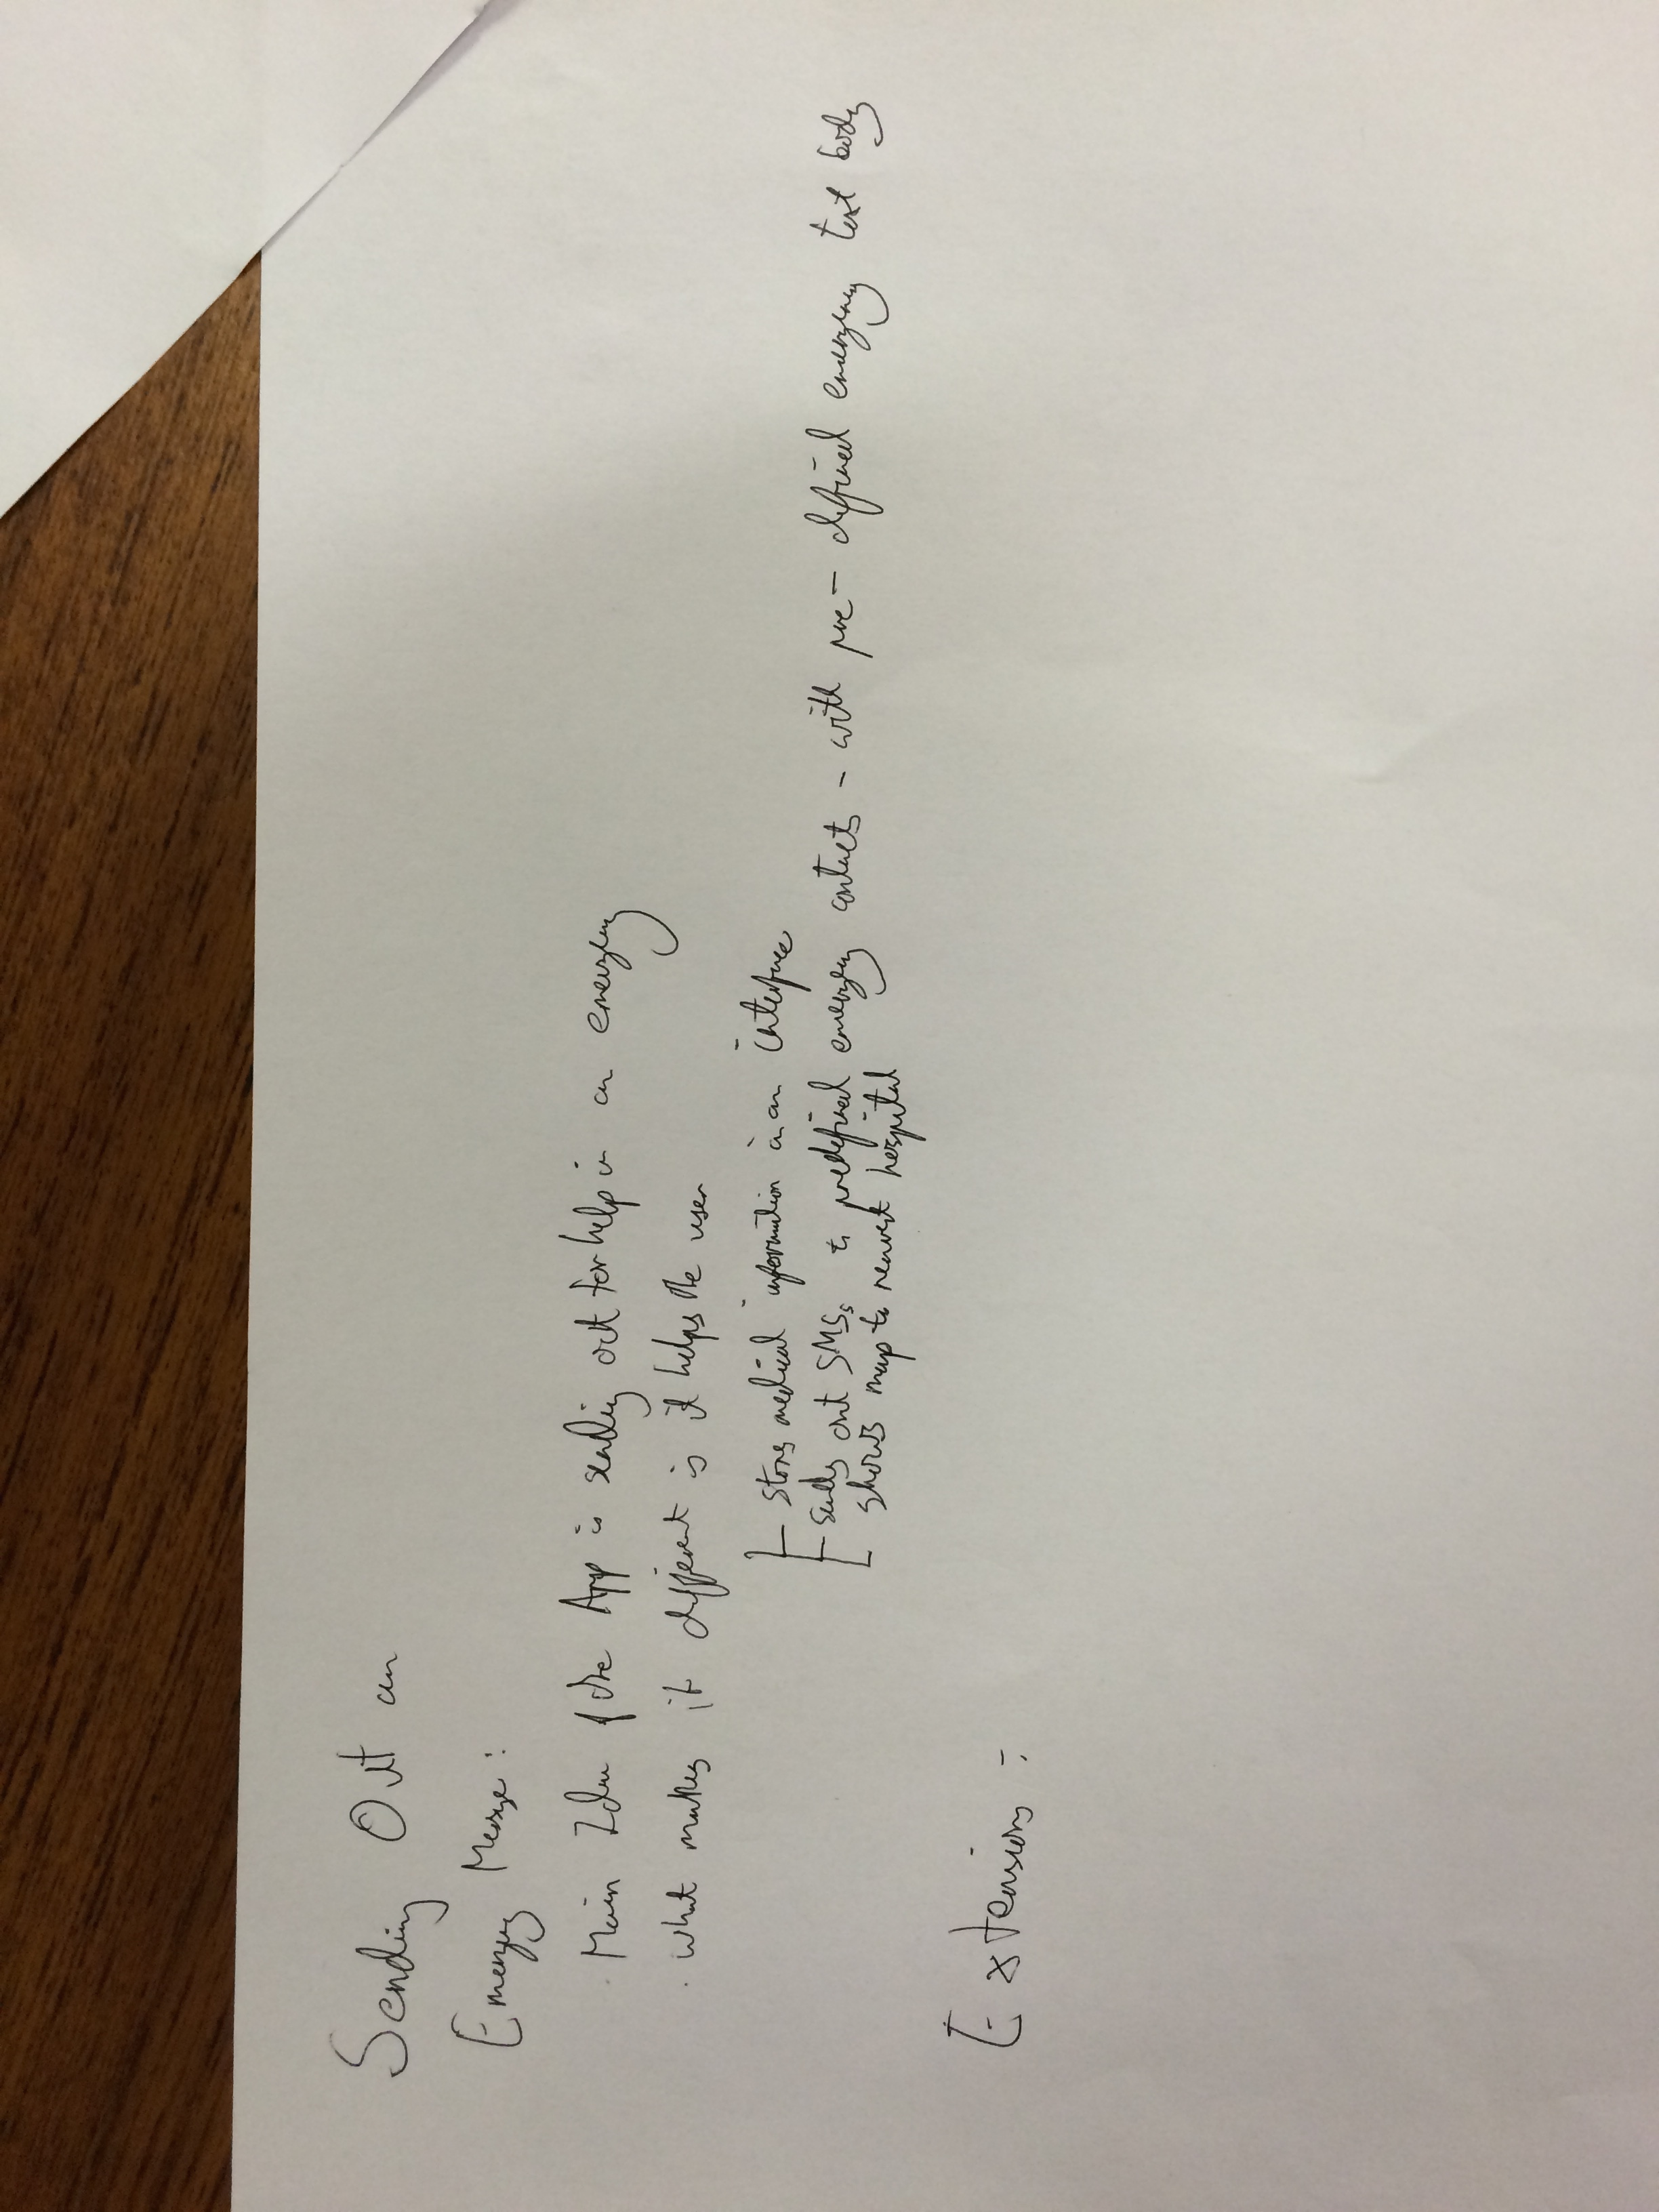 Sending Out an
Emergency Message:
. Main Idea of the App is sending out for help in an emergency
. what makes it different is it helps the user
- stores medical information in an interface
- sends out SMSs to predefined emergency contacts - with pre-defined emergency text body
- shows map to nearest hospital
Extensions: